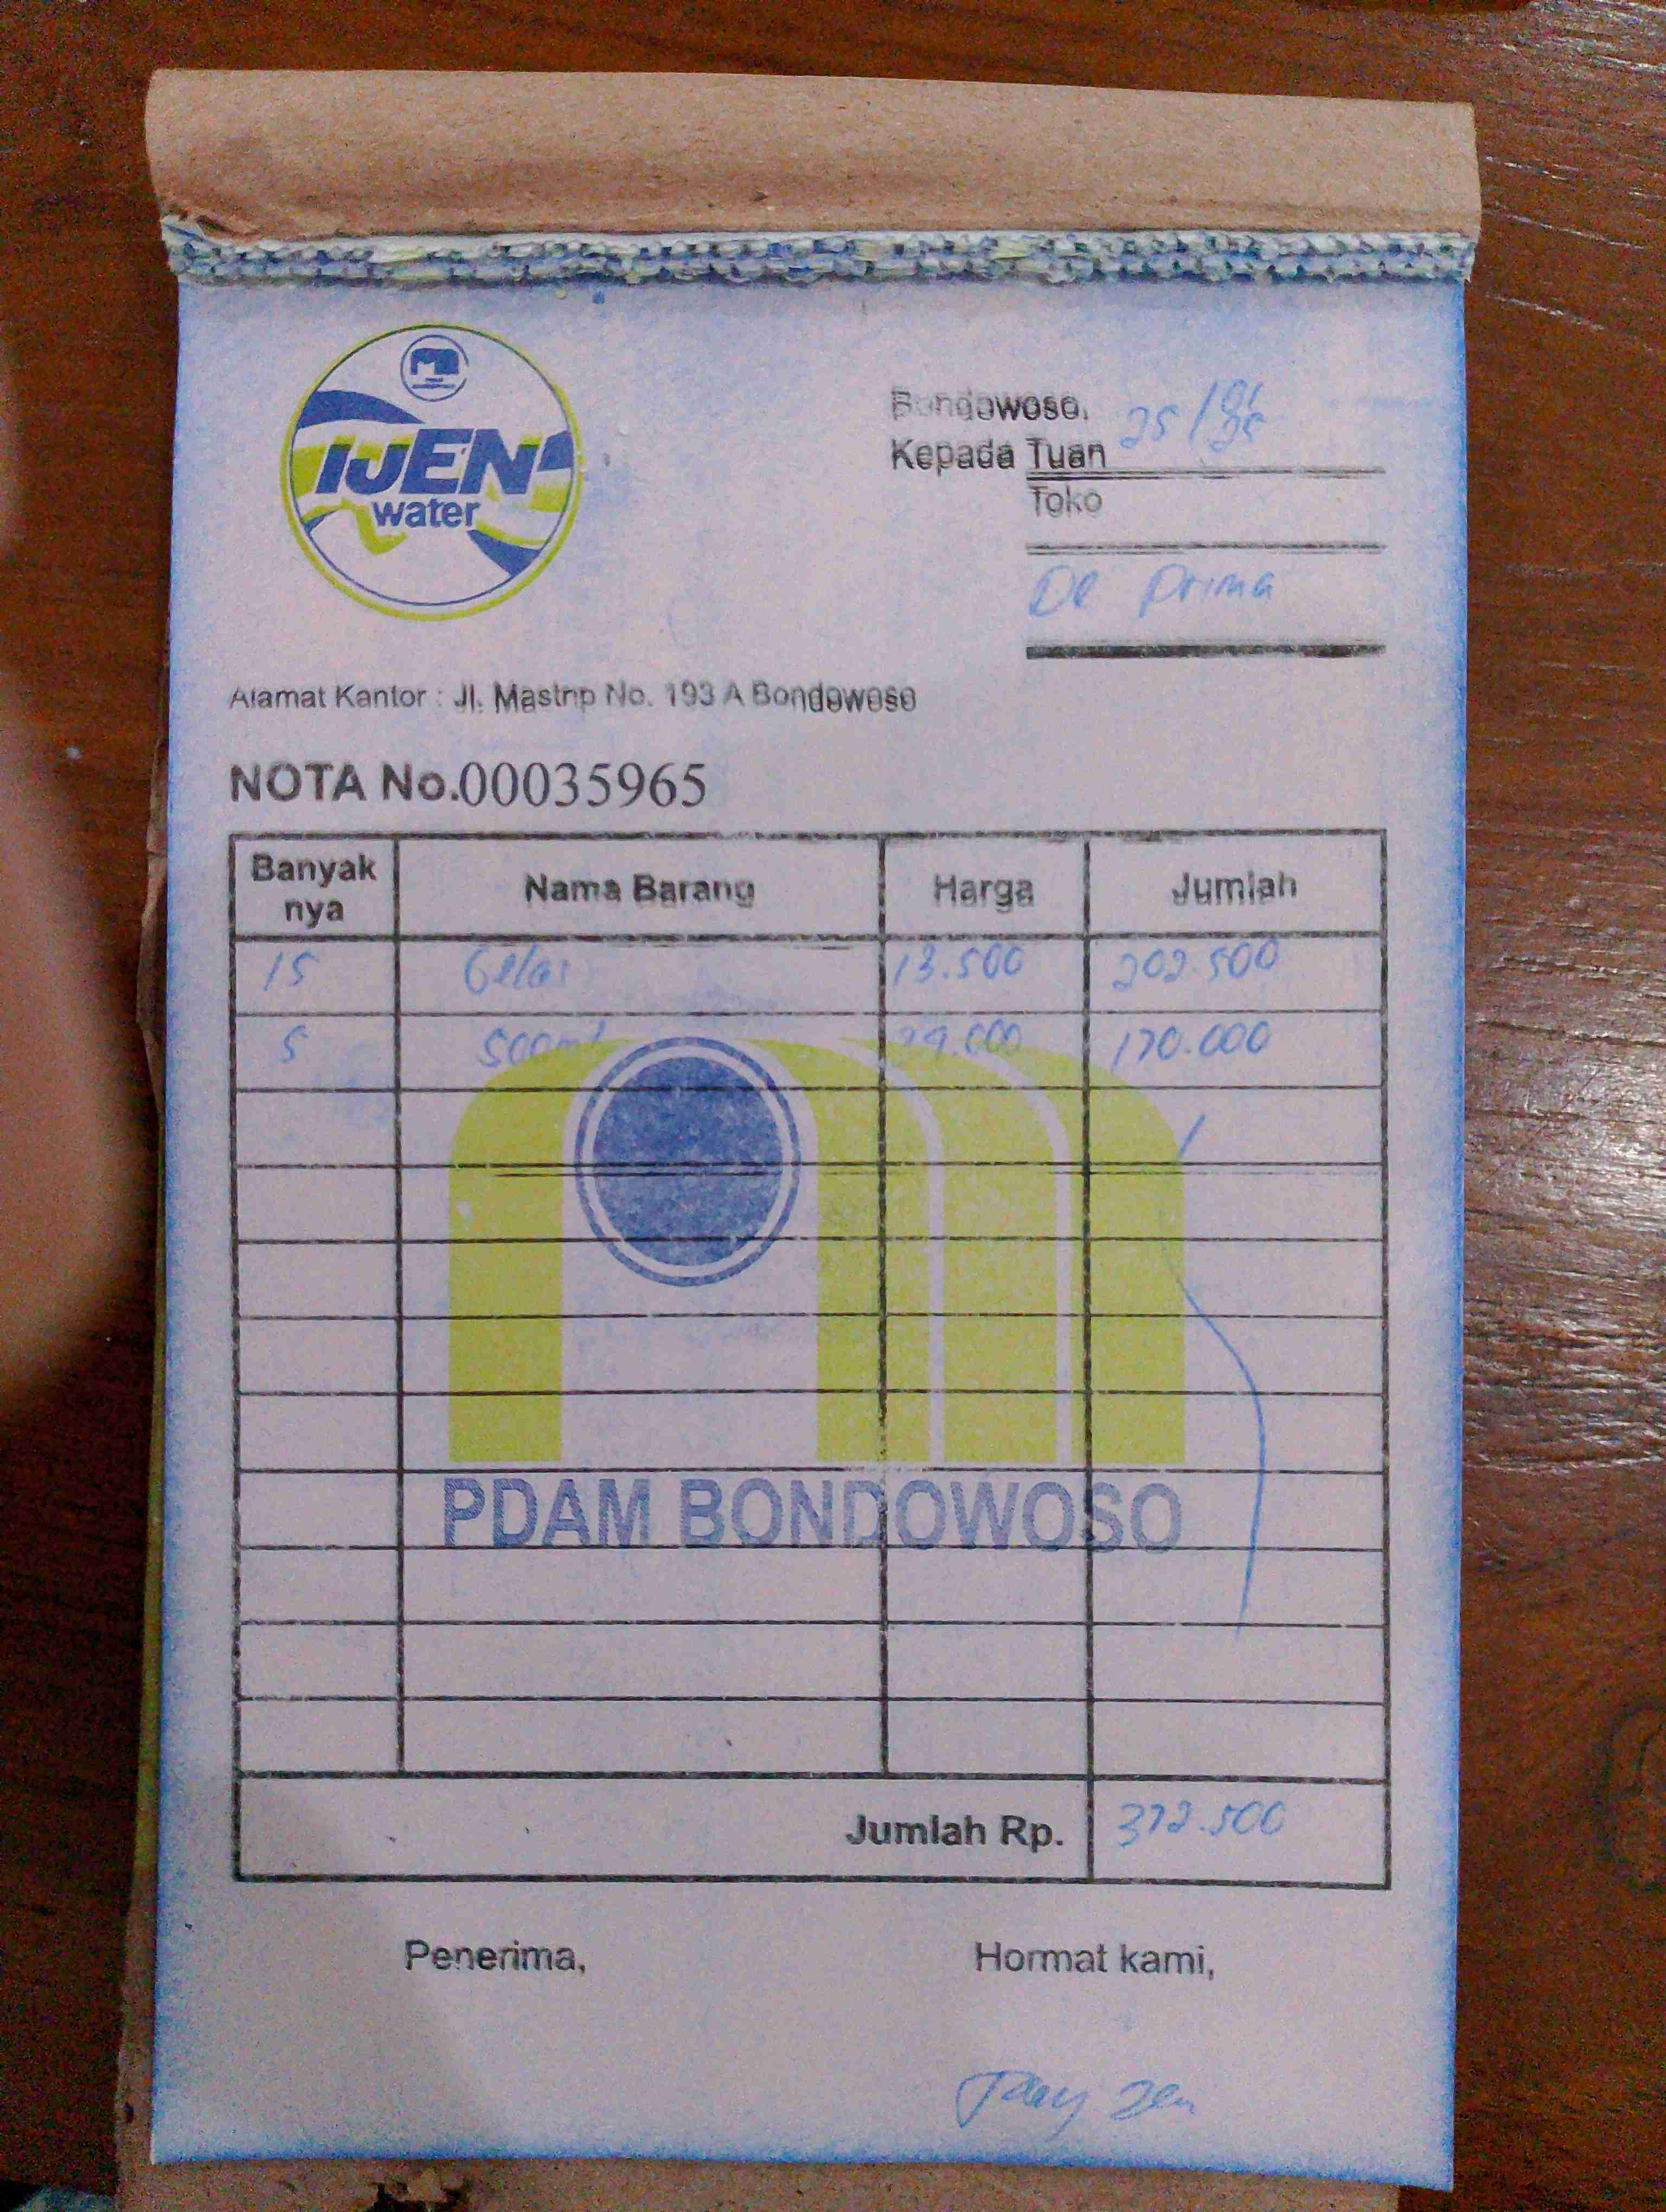 IJEN
water
Bondowoso, 25/01/25
Kepada Tuan
Toko
De Prima
Alamat Kantor : Jl. Mastrip No. 193 A Bondowoso
NOTA No.00035965
Banyak nya Nama Barang Harga Jumlah
15 Gelas 13.500 202.500
5 500ml 170.000
PDAM BONDOWOSO
Jumlah Rp. 372.500
Penerima, Hormat kami,